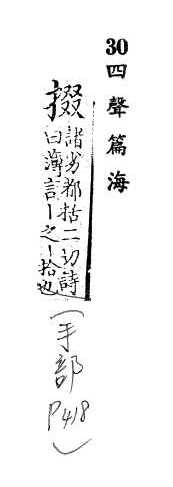 30 四聲篇海
掇 諸劣都括二切詩
曰薄言丨之丨拾也
(手部
P418)